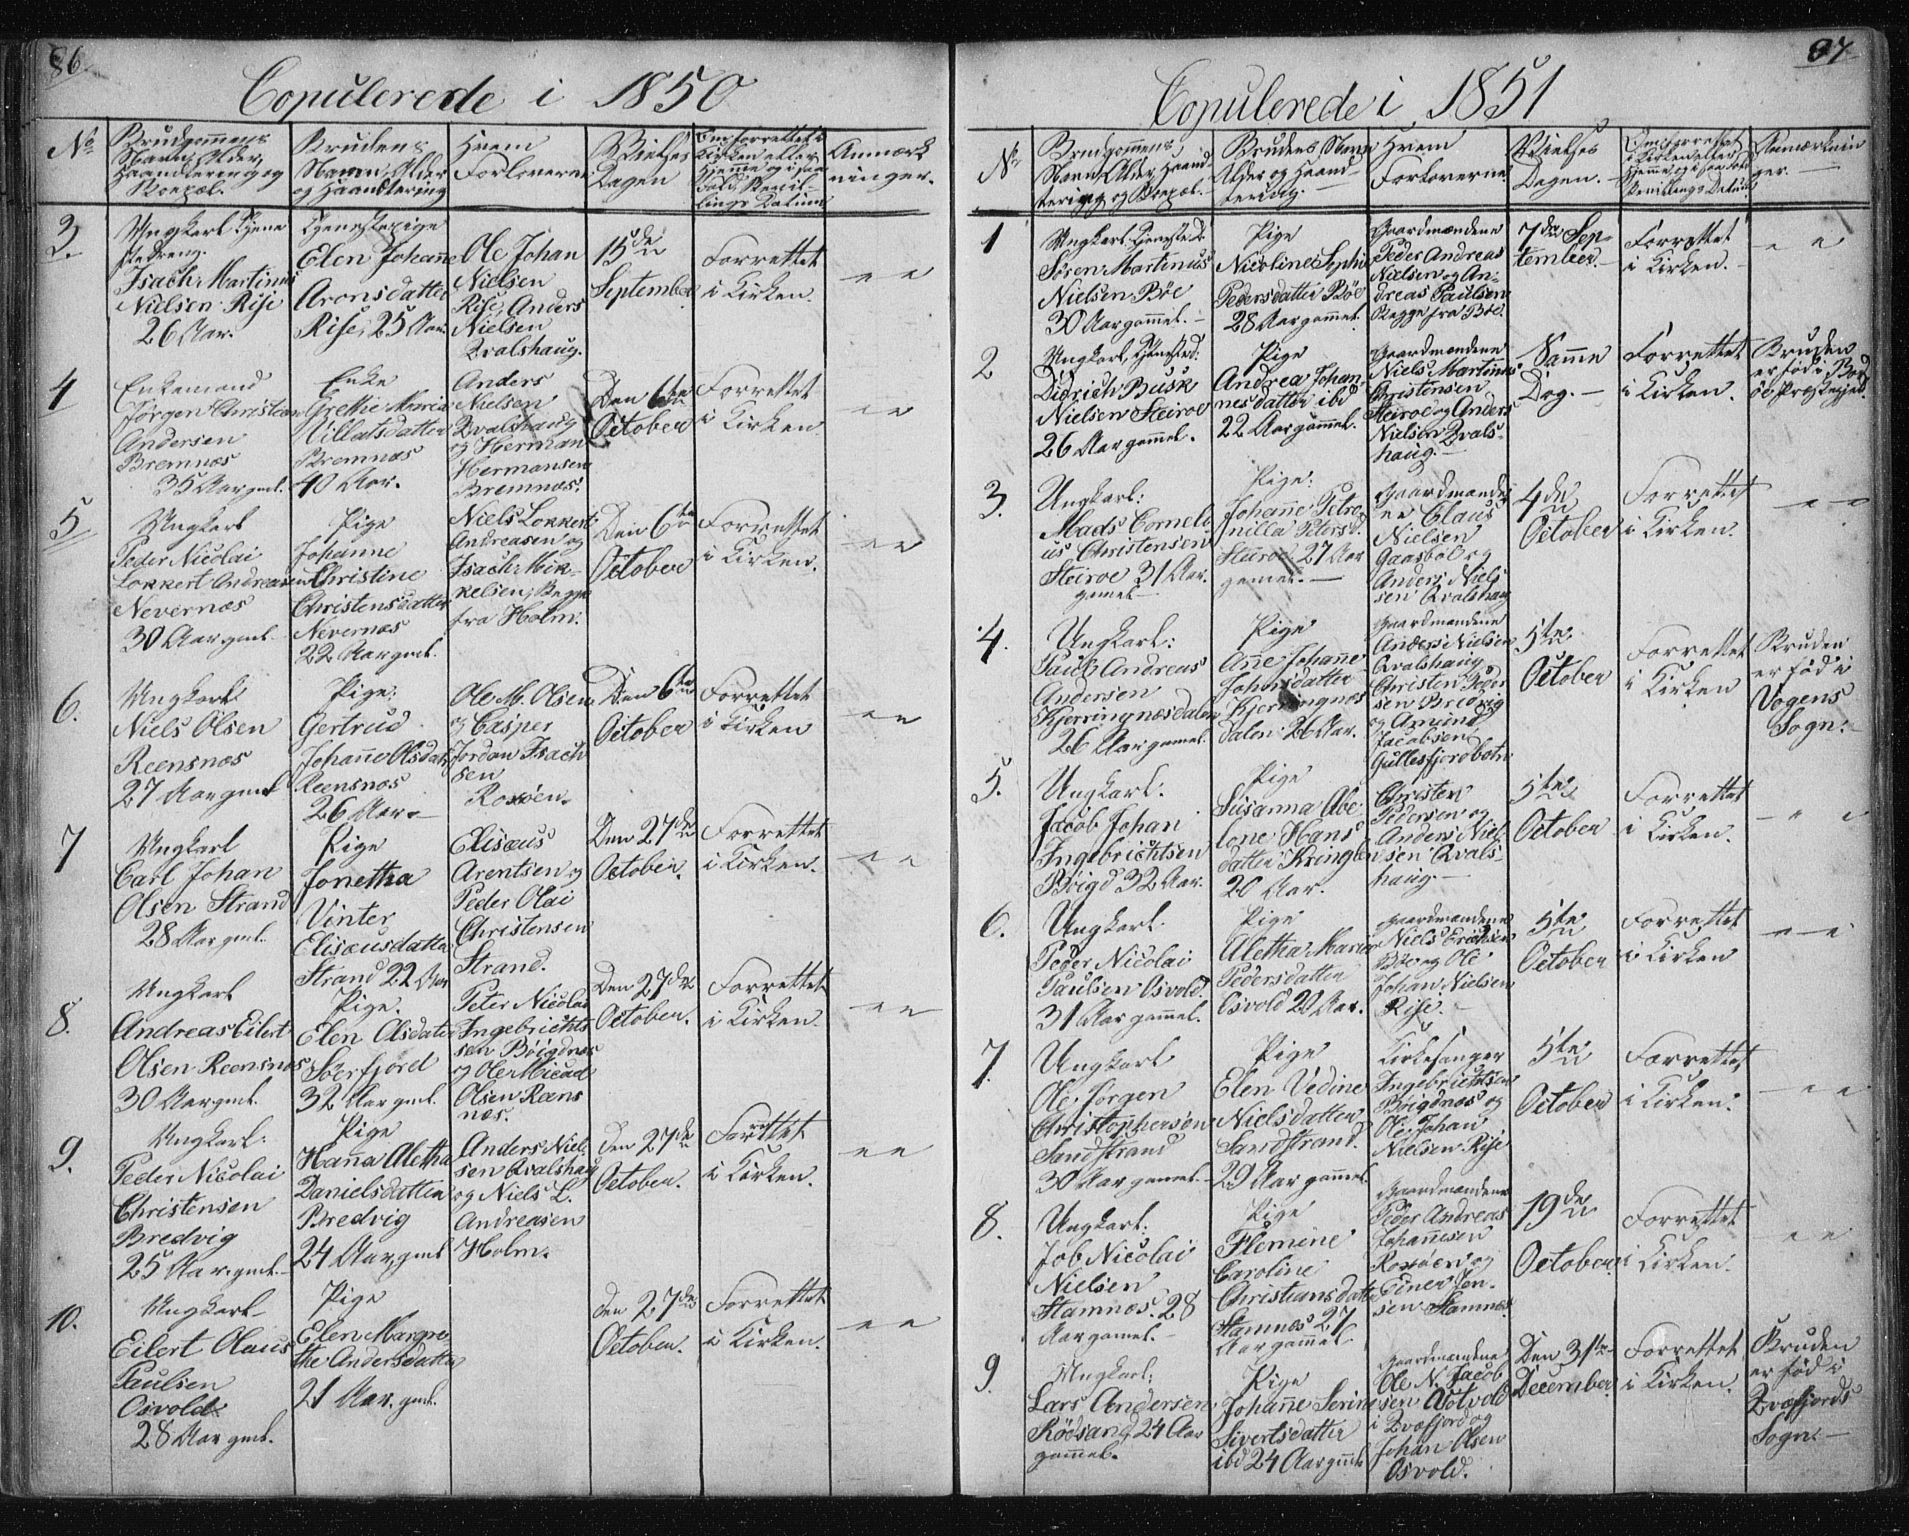 86.
Copulerede i 1850
No.
Brudgommens
Navn, Alder,
Haandtering og
Boepæl.
Brudens
Navn, Alder
og Haandtering
Hvem
Forloverne
Vielses
Dagen
Om forrettet i
Kirken eller
hjemme og i saa
Fald Bevil-
lings Datum
Anmærk
ninger.
3.
Ungkarl Tjene
stedreng.
Isach Martinus
Nielsen Rise
26 Aar.
Tjenestepige
Elen Johanne
Aronsdatter
Rise, 25 Aar.
Ole Johan
Nielsen
Rise, Anders
Nielsen
Qvalshaug.
15de
September
Forrettet
i Kirken.
" "
4
Enkemand
Jörgen Christian
Andersen
Bremnæs
35 Aar gml.
Enke
Grethe Maria
Villatsdatter
Bremnæs
40 Aar.
Anders
Nielsen
Qvalshaug
og Herman
Hermansen
Bremnæs.
Den 6te
October
Forrettet
i Kirken.
" "
5
Ungkarl
Peder Nicolai
Lokkert Andreasen
Nevernæs
30 Aar gml.
Pige
Johanne
Christine
Christensdatter
Nevernæs
22 Aar gml.
Niels Lokkert
Andreasen og
Isach Mik-
kelsen, Begge
fra Holm.
Den 6te
October
Forrettet
i Kirken.
" "
6.
Ungkarl
Niels Olsen
Reensnæs
27 Aar gml
Pige.
Gertrud
Johanne Olsdatter
Reensnæs
26 Aar.
Ole M. Olsen
og Casper
Jordan Isach
sen
Roxöen.
Den 6te
October
Forrettet
i Kirken
" "
7
Ungkarl
Carl Johan
Olsen Strand
28 Aar gml.
Pige
Jonetha
Vinter
Elisæusdatter
Strand 22 Aar
Elisæus
Arentsen og
Peder Olai
Christensen
Strand.
Den 27de
October.
Forrettet
i Kirken.
" "
8.
Ungkarl
Andreas Eilert
Olsen Reensnæs
30 Aar gml.
Pige.
Elen Olsdatter
Sörfjord
32 Aar gml.
Peter Nicolai
Ingebrichts
sen Böigdnæs
og Ole Micael
Olsen Reens
næs.
Den 27de
October.
Forrettet
i Kirken.
" "
9.
Ungkarl.
Peder Nicolai
Christensen
Bredvig
25 Aar. gml.
Pige
Hana Aletha
Danielsdatter
Bredvig
24 Aar gml
Anders Niel-
sen Qvalshaug
og Niels L.
Andreasen
Holm.
Den 27de
October.
Forrettet
i Kirken.
" "
10.
Ungkarl
Eilert Olaus
Paulsen
Osvold.
28 Aar gml.
Pige
Elen Margre
the Andersdatter
21 Aar. gml.
den 27de
October.
Forrettet
i Kirken.
" "
87.
Copulerede i 1851
No
Brudgommens,
Navn Alder, Haand
tering og Boepæl.
Brudens Navn
Alder og Haand-
tering.
Hvem
Forloverne.
Vielses
Dagen.
Om forrettet
i Kirken eller
hjemme og i saa Fald
Bevillings Datum
Anmærknin
ger.
1
Ungkarl, Tjenested.
Sören Martinus
Nielsen Böe
30 Aar gammel.
Pige
Nicoline Sophie
Pedersdatter Böe
28 Aar gammel.
Gaardmændene
Peder Andreas
Nielsen og An-
dreas Paulsen
Begge fra Böe.
7de Sep-
tember.
Forrettet
i Kirken.
" "
2
Ungkarl, Tjenested.
Didrich Busk
Nielsen Steiroe
26 Aar gammel.
Pige
Andrea Johan-
nesdatter ibd
22 Aar gammel.
Gaardmændene
Niels Martinus
Christensen
Steiroe og Anders
Nielsen Qvals-
haug.
Samme
Dag.
Forrettet
i Kirken.
Bruden
er föd i Bod
öe Præstegjeld.
3.
Ungkarl:
Mads Corneli-
us Christensen
Steiroe 31 Aar.
gamel.
Pige:
Johanne Petro-
nilla Petersd.
Steiroe 27 Aar
gamel.
Gaardmænde
ne Claus
Nielsen
Gaasböl og
Anders Niel-
sen Qvalshaug
4de
October
Forrettet
i Kirken.
" "
4.
Ungkarl:
Paul Andreas
Andersen
Kjerringnæsdalen
26 Aar gamel.
Pige
Ane Johanne
Johnsdatter
Kjerringnæs
dalen. 26 Aar.
Gaardmændene
Anders Nielsen
Qvalshaug,
Christen Peder
sen Bredvig
og Amund
Jacobsen
Gullesfjordbotn.
5te
October
Forrettet
i Kirken
Bruden
er föd i
Vogens
Sogn.
5.
Ungkarl.
Jacob Johan
Ingebrichtsen
Böigd 32 Aar.
Pige
Susanna Abe
lone Hans
datter Kringlen
20 Aar.
Christen
Pedersen og
Anders Niel-
sen Qvals-
haug.
5te
October
Forrettet
i Kirken.
" "
6.
Ungkarl.
Peder Nicolai
Paulsen Osvold.
31 Aar gammel.
Pige
Aletha Maria
Pedersdatter
Osvold 20 Aar.
Gaardmændene
Niels Erichsen
Böe og Ole
Johan Nielsen
Rise.
5te
October
Forrettet
i Kirken
" "
7.
Ungkarl
Ole Jörgen
Christophersen
Sandstrand
30 Aar gamel.
Pige
Elen Vedine
Nielsdatter
Sandstrand.
29 Aar gammel.
Kirkesanger
Ingebrichtsen
Böigdnæs og
Ole Johan
Nielsen Rise
5te
October
Forrettet
i Kirken.
" "
8.
Ungkarl.
Job Nicolai
Nielsen
Stamnæs. 28
Aar gamel.
Pige
Flemine
Caroline
Christiansdatter
Stamnæs 27
Aar gammel
Gaardmændene
Peder Andreas
Johannesen
Roxöen og
Einer Jen-
sen Stamnæs.
19de
October.
Forrettet
i Kirken.
" "
9.
Ungkarl.
Lars Andersen
Rödsand 24 Aar
gammel.
Pige
Johanne Serine
Sivertsdatter
ibd 24 Aar gml
Gaardmændene
Ole N. Jacob
sen Astvold
i Qvæfjord og
Johan Olsen
Osvold.
Den 31te
December
Forrettet
i Kirken.
Bruden
er föd i
Qvæfjords
Sogn.